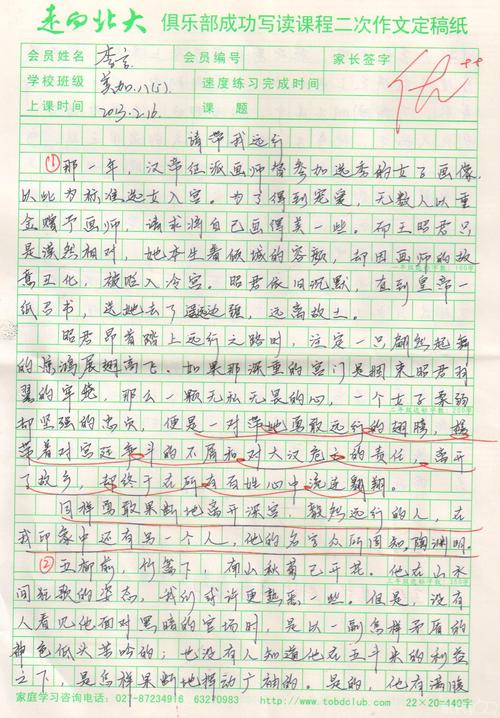 走向北大 俱乐部成功写读课程二次作文定稿纸
会员姓名 李言 会员编号 家长签字
学校班级 美加.八(5). 速度练习完成时间
上课时间 2013.2.16. 课题
优
请带我远行
① 那一年，汉帝任派画师督参加选秀的女子画像，
以此为标准选女入宫。为了得到宠爱，无数人以重
金赠予画师，请求将自己画得美一些。而王昭君只
是漠然相对，她本生着倾城的容颜，却因画师的故
意丑化，被贬入冷宫。昭君依旧沉默，直到皇帝一
一年级达标字数：100字
纸召书，送她去了遥远边疆，远离故土。
昭君昂首踏上远行之路时，注定一只翩然起舞
的惊鸿展翅高飞。如果那深重的宫门是捆束昭君羽
翼的牢笼，那么一颗无私无畏的心，一个女子柔弱
二年级达标字数：200字
却坚强的忠贞，便是一对带她勇敢远行的翅膀，携
带着对宫廷争斗的不屑和对大汉危亡的责任，离开
了故乡，却终于在所有百姓心中流连翩翩。
同样勇敢果断地离开深宫，毅然远行的人，在
我印象中还有另一个人，他的名字众所周知陶渊明。
② 五柳前，竹篱下，南山秋菊已开花。他在山水
三年级达标字数：300字
间狂歌的姿态，我们或许更熟悉一些。但是，没有
人看见他面对黑暗的官场时，是以一副怎样矛盾的
神色低头苦吟的；也没有人知道他在五斗米的利益
之下，是怎样果断地挥动广袖的。是的，他有满腹
家庭学习咨询电话：027-87234916 63210983 http://www.tobdclub.com 22×20=440字